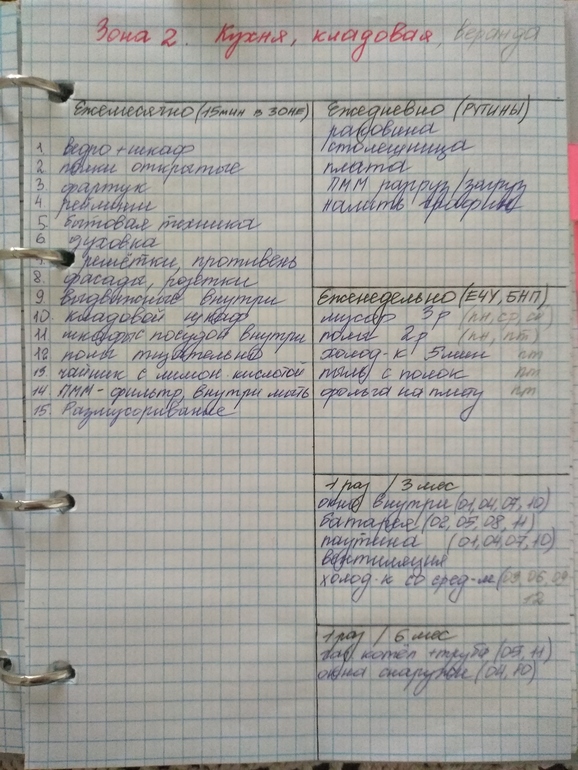 Зона 2. Кухня, кладовая, веранда
Ежемесячно (15 мин в ЗОНЕ)
1. ведро + шкаф
2. полки открытые
3. фартук
4. рейлинги
5. бытовая техника
6. духовка
7. решётки, противень
8. фасады, розетки
9. выдвижные внутри
10. кладовой шкаф
11. шкафы с посудой внутри
12. полы тщательно
13. чайник с лимон. кислотой
14. ПММ - фильтр, внутри мыть
15. Размусоривание
Ежедневно (РУТИНЫ)
раковина
столешница
плата
ПММ разгруз/загруз
налить
Еженедельно (ЕЧУ, БНП)
мусор 3р (пн, ср, сб)
полы 2р (пн, пт)
холод-к 5 мин пт
пыль с полок пт
фольга на плиту пт
1 раз / 3 мес
окно внутри (01,04,07,10)
батарея (02,05,08,11)
паутина (01,04,07,10)
вентиляция
холод-к со сред-м (03,06,09
12
1 раз / 6 мес
газ. котёл + труба (05,11)
окна снаружи (04,10)